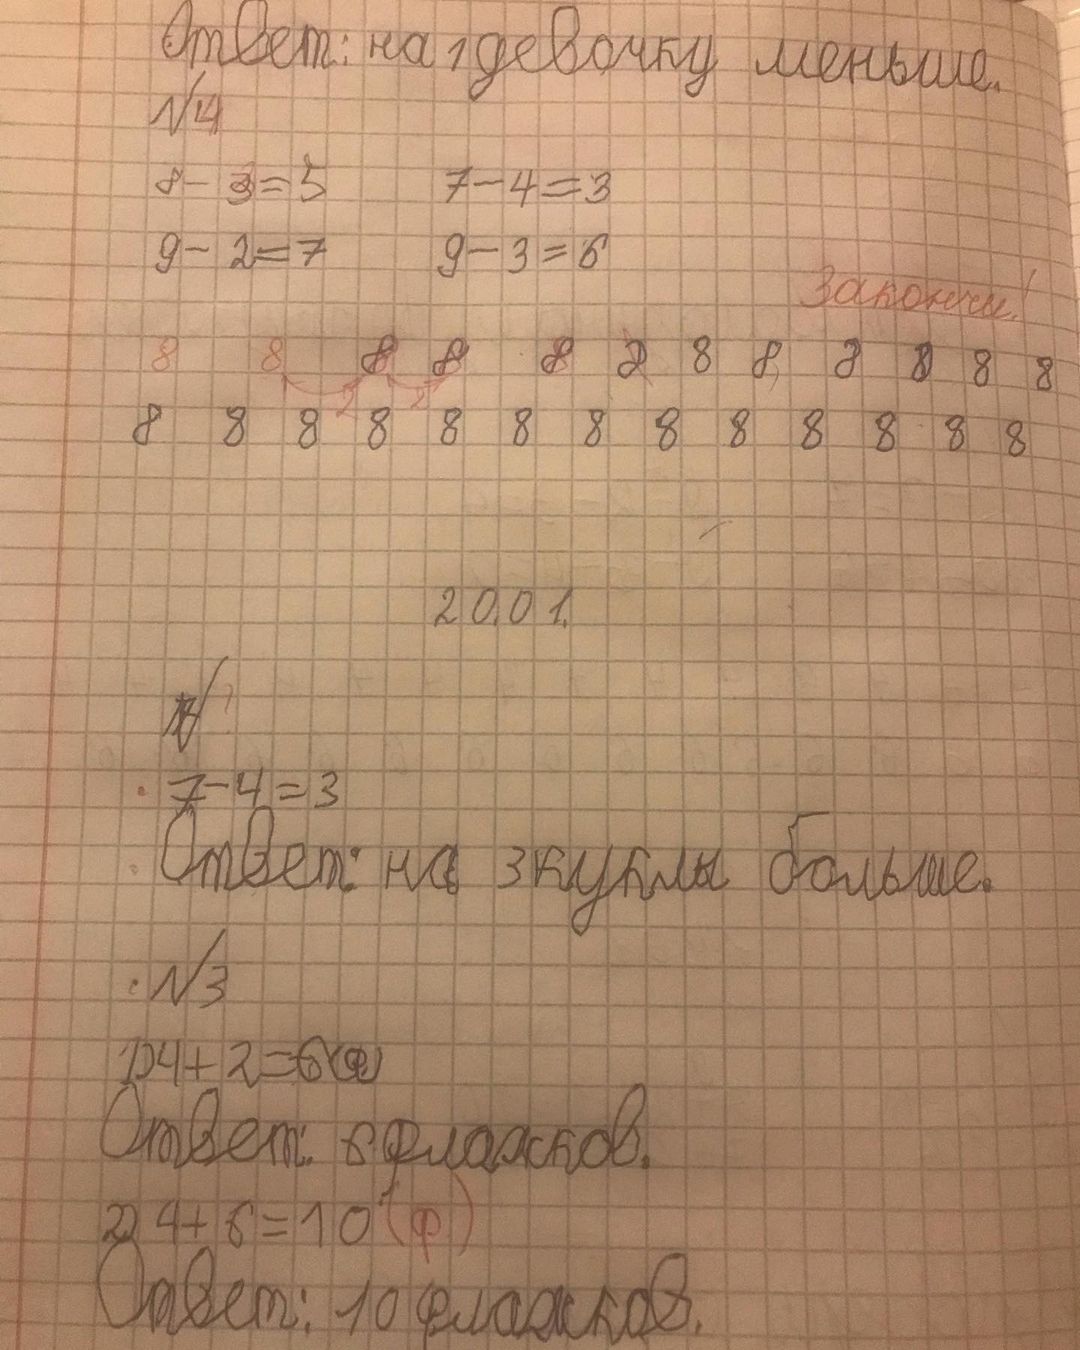 Ответ: на 1 девочку меньше.
№4
8-3=5 7-4=3
9-2=7 9-3=6
Закончи!
8 8 8 8 8 2 8 8 8 8 8 8
2 2
8 8 8 8 8 8 8 8 8 8 8 8 8
20.01.
7-4=3
Ответ: на 3 куклы больше.
№3
1) 4+2=6(ф)
Ответ: 6 флажков.
2) 4+6=10 (ф)
Ответ: 10 флажков.